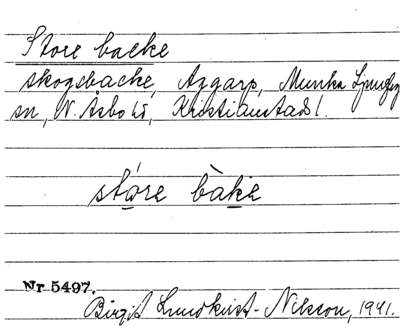 Store backe
skogsbacke, Aggarp, Munka Ljungby
sn, N. Åsbo hd, Kristianstads l.
stóre bàke
Nr 5497.
Birgit Lundkvist-Nilsson, 1941.